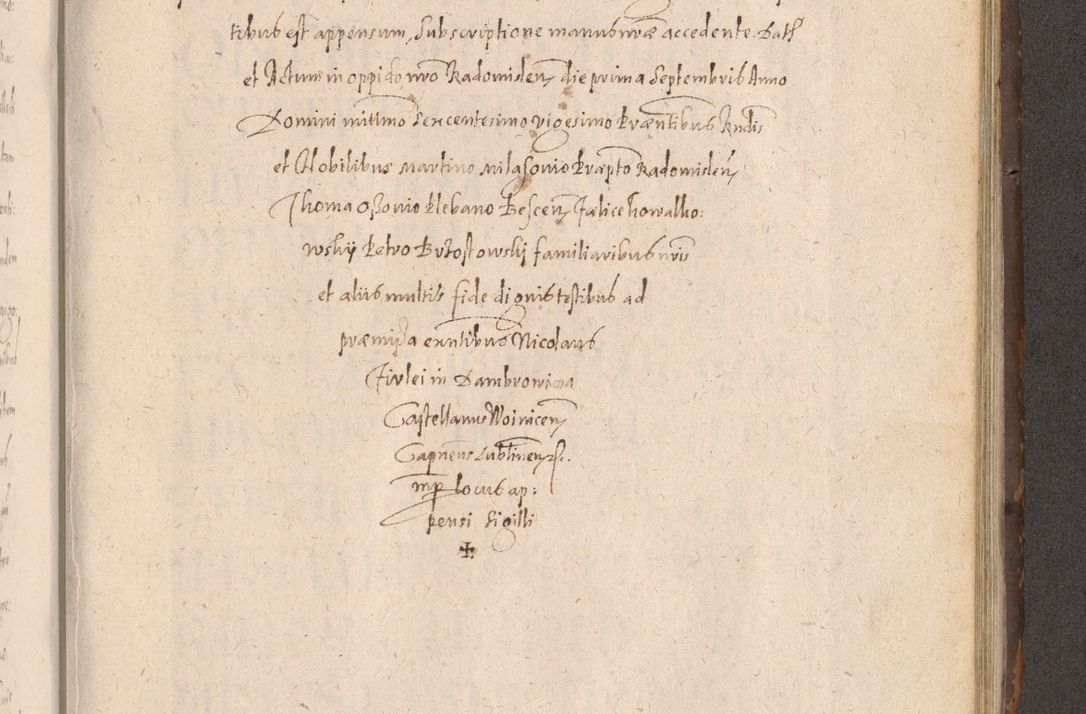 tibus est appensum, Subscriptione manus nræ accedente. Dat
et Actum in oppido nro Radomislen, die prima Septembris Anno
Domini millmo Sexcentesimo vigesimo Præntibus Rndis
et Nobilibus Martino Præpto Radomislen,
Thoma Plebano
wskÿ Petro Brzostowskj familiaribus nris
et aliis multis fide dignis testibus ad
præmissa exntibus Nicolaus
Firlei in Dambrowica
Castellanus Woinicen,
Capneus Lublinen,
mp Locus ap:
pensi Sigilli
✠